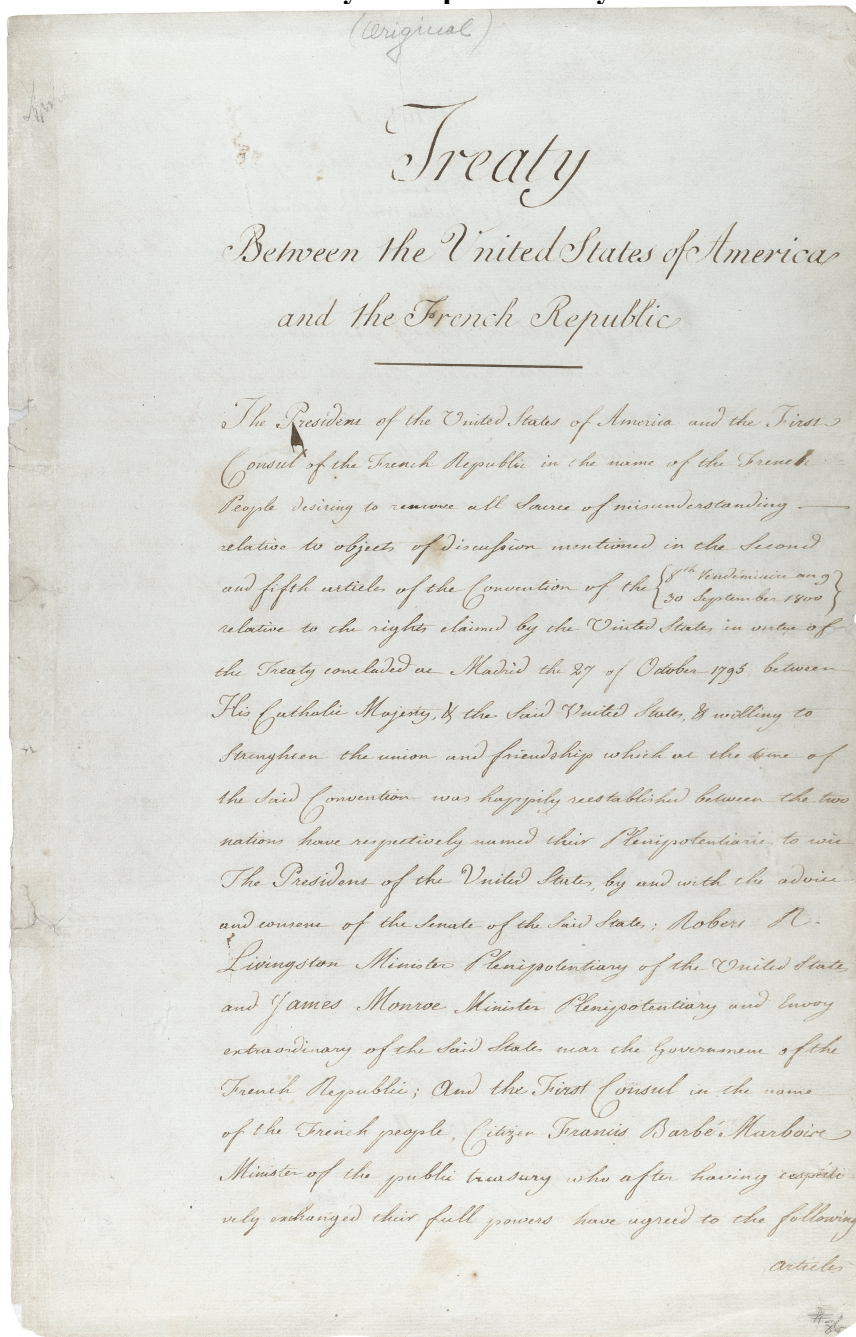 (Original)
Treaty
Between the United States of America
and the French Republic
The President of the United States of America and the First
Consul of the French Republic in the name of the French
People desiring to remove all Source of misunderstanding
relative to objects of discussion mentioned in the Second
and fifth articles of the Convention of the {8th Vendémiaire an 9
30 September 1800}
relative to the rights claimed by the United States in virtue of
the Treaty concluded at Madrid the 27 of October 1795, between
His Catholic Majesty, & the Said United States, & willing to
Strenghten the union and friendship which at the time of
the Said Convention was happily reestablished between the two
nations have respectively named their Plenipotentiaries to wit
The President of the United States, by and with the advice
and consent of the Senate of the Said States; Robert R.
Livingston Minister Plenipotentiary of the United States
and James Monroe Minister Plenipotentiary and Envoy
extraordinary of the Said States near the Government of the
French Republic; And the First Consul in the name
of the French people, Citizen Francis Barbé Marbois
Minister of the public treasury who after having respecti
vely exchanged their full powers have agreed to the following
articles